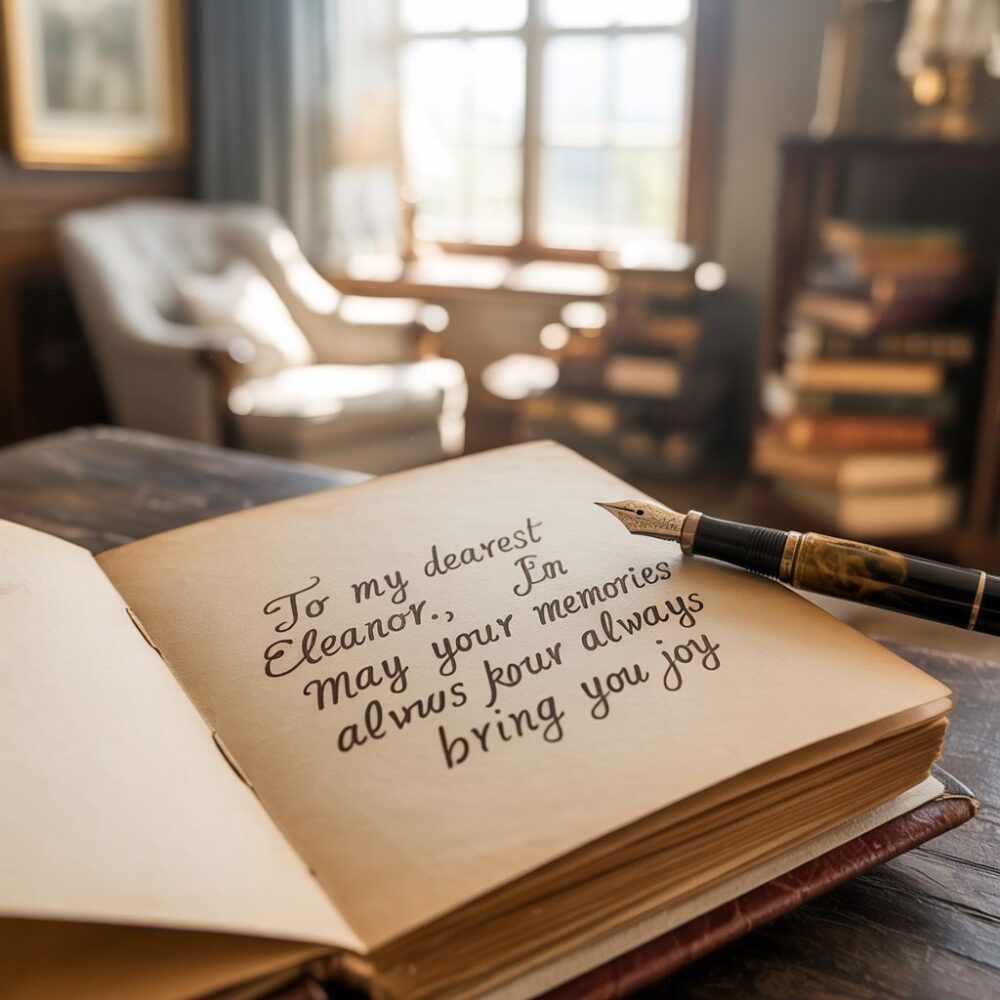 To my dearest
Eleanor., En
may your memories
alwus your always
bring you joy